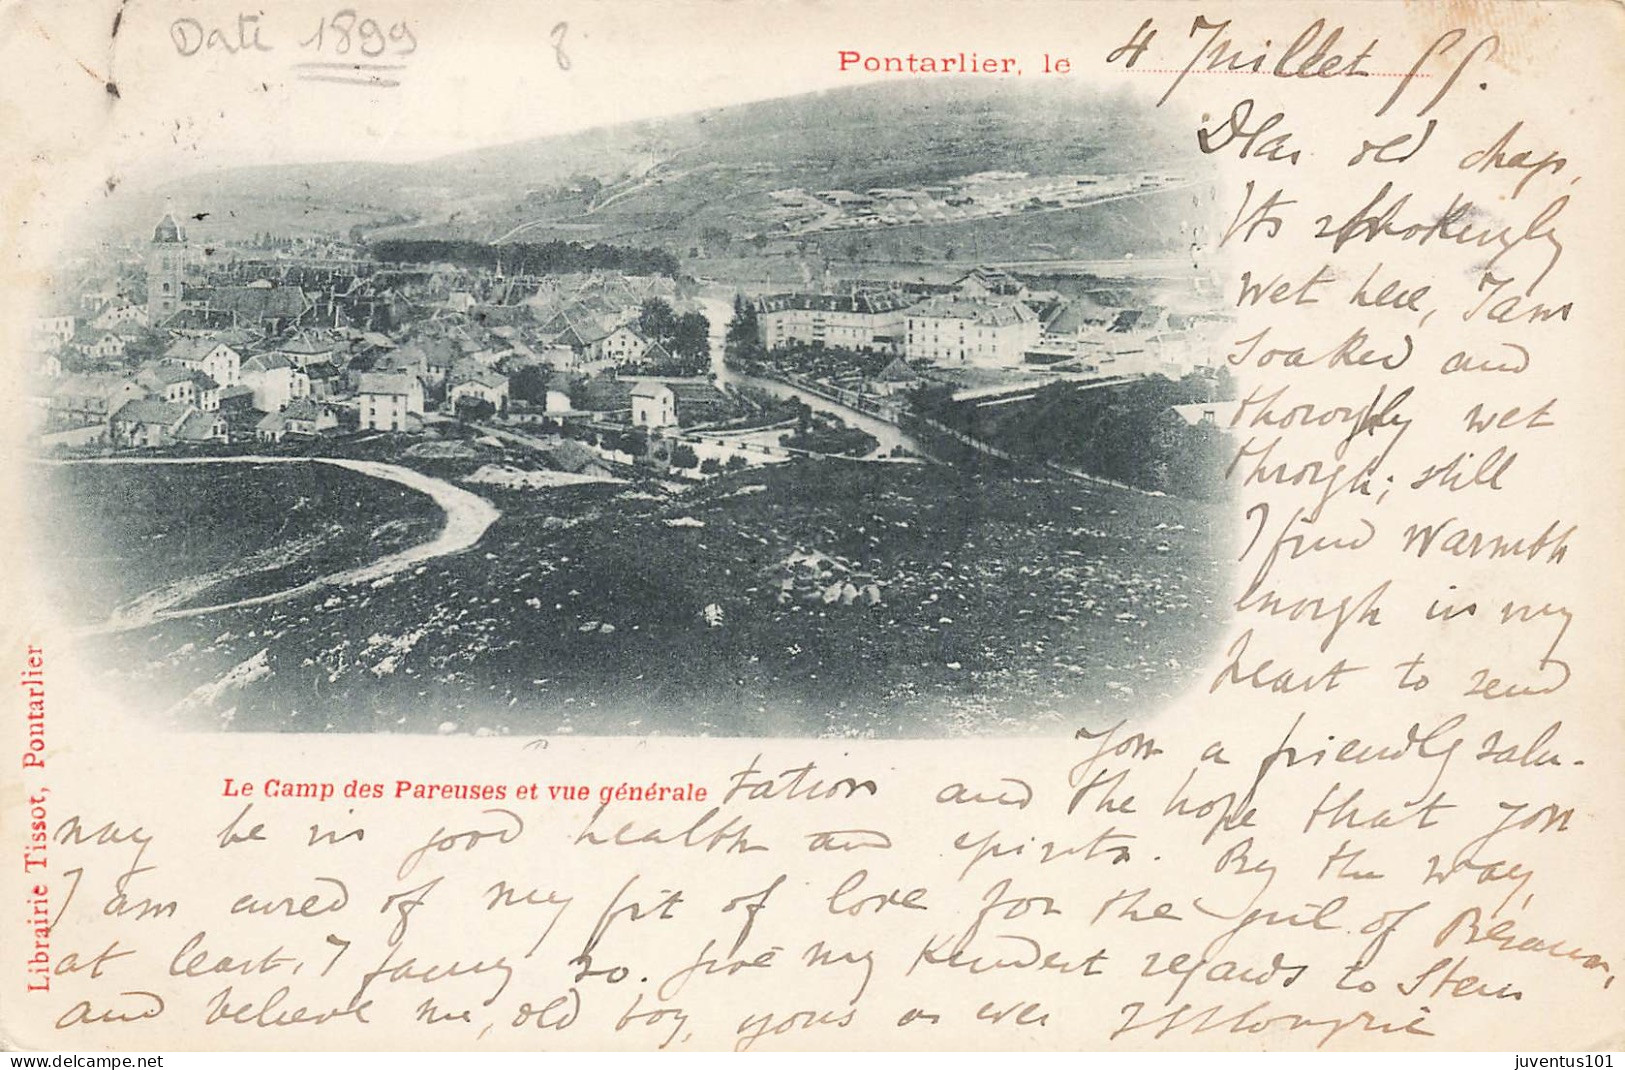 Date 1899
8
Pontarlier, le 4 Juillet 99.
Dear old chap,
Its shokingly
wet here, I am
soaked and
thoroughly wet
through; still
I find warmth
enough in my
heart to send
you a friendly salu-
Le Camp des Pareuses et vue générale
tation and the hope that you
may be in good health and spirits. By the way,
I am cured of my fit of love for the girl of Besançon,
at least, I fancy so. Give my kindest regards to Stern
and believe me, old boy, yours as ever
Librairie Tissot, Pontarlier
www.delcampe.net
juventus101